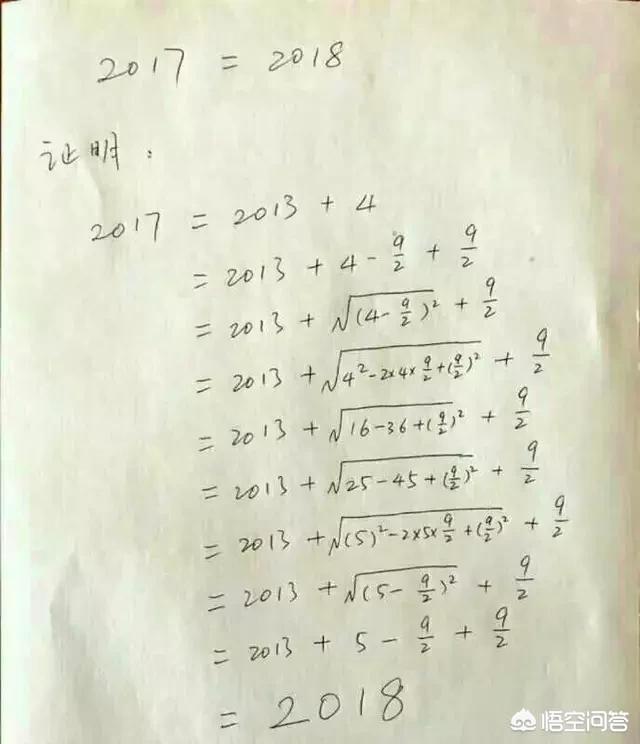 2017 = 2018
证明：
2017 = 2013 + 4
= 2013 + 4 - 9/2 + 9/2
= 2013 + √(4 - 9/2)² + 9/2
= 2013 + √4² - 2×4×9/2 + (9/2)² + 9/2
= 2013 + √16 - 36 + (9/2)² + 9/2
= 2013 + √25 - 45 + (9/2)² + 9/2
= 2013 + √(5)² - 2×5×9/2 + (9/2)² + 9/2
= 2013 + √(5 - 9/2)² + 9/2
= 2013 + 5 - 9/2 + 9/2
= 2018
悟空问答